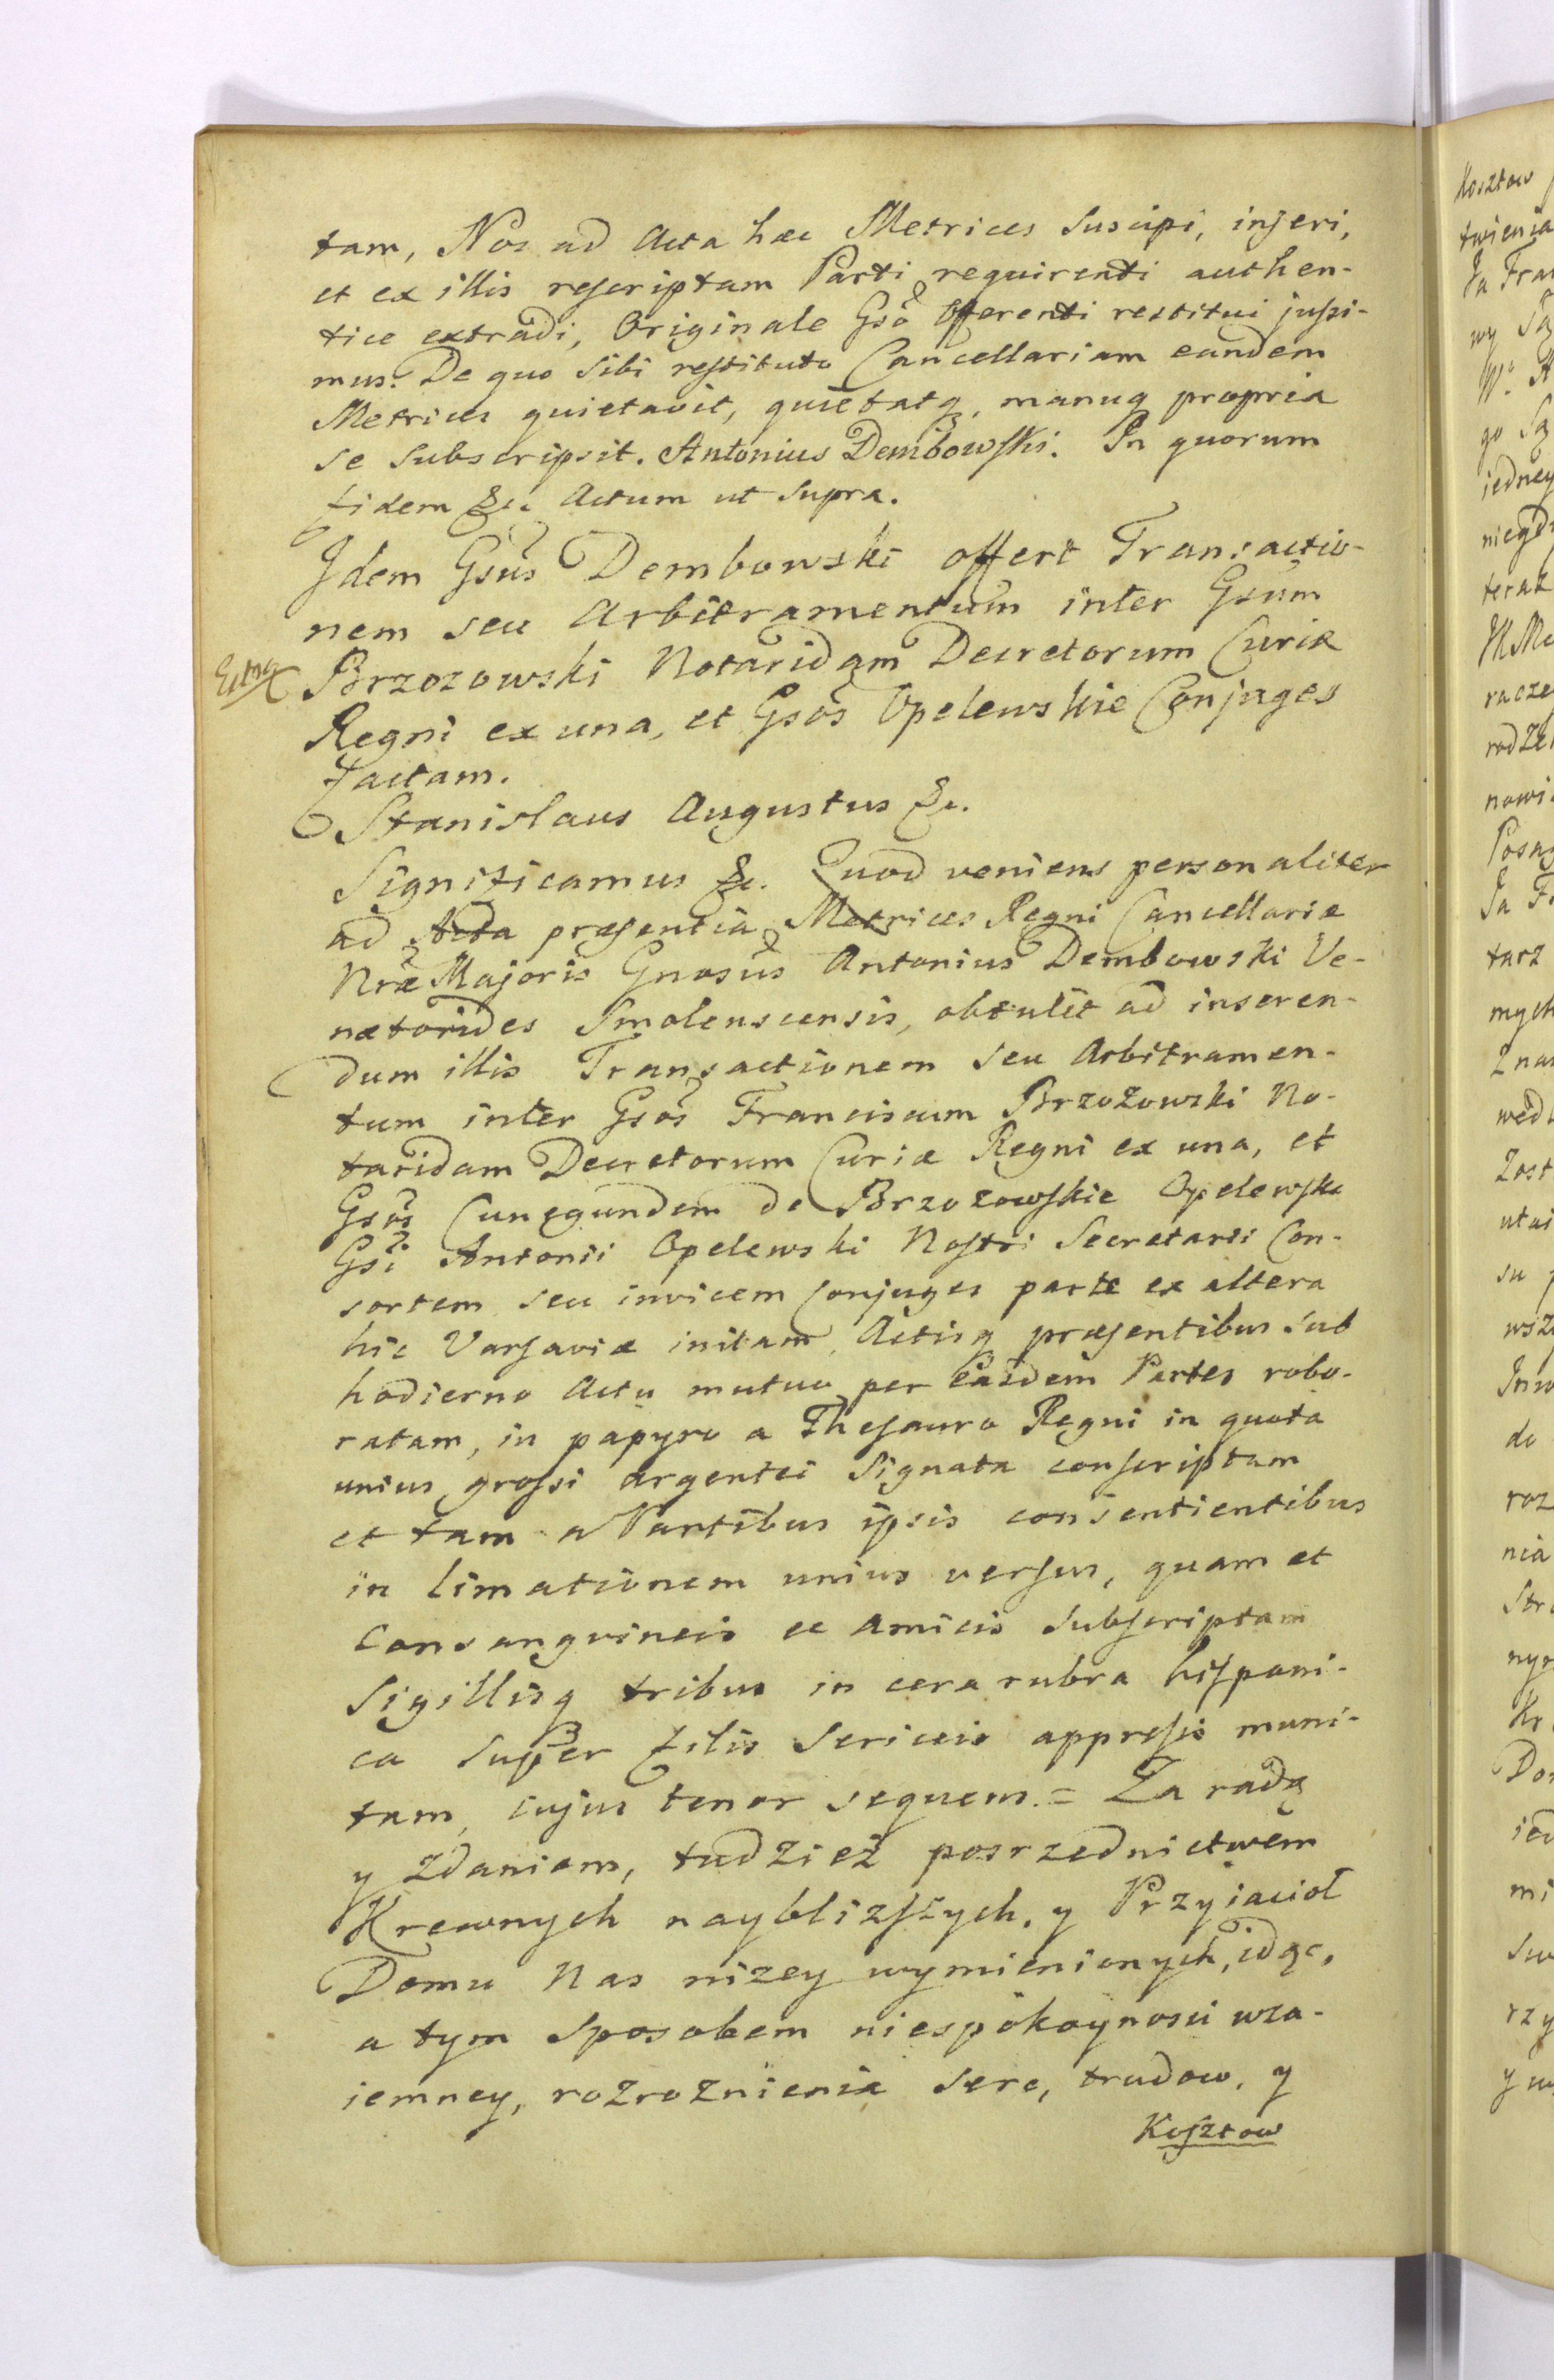 tam, Nos ad Acta hæc Metrices Suscipi, inseri,
et ex illis rescriptam Parti requirenti authen-
tice extradi, Originale Gso Offerenti restitui jussi-
mus. De quo Sibi restituto Cancellariam eandem
Metrices quietavit, quietatq, manuq propria
se Subscripsit. Antonius Dembowski. In quorum
fidem &c. Actum ut Supra.
Idem Gsus Dembowski offert Transactio-
nem seu Arbitramentum inter Gsum
Brzozowski Notaridam Decretorum Curiæ
Regni ex una, et Gsos Opelewskie Conjuges
factam.
Stanislaus Augustus &c.
Significamus &c. Quod veniens personaliter
ad Acta præsentia Metrices Regni Cancellariæ
Nræ Majoris Gnosus Antonius Dembowski Ve-
natorides Smolenscensis, obtulit ad inseren-
dum illis Transactionem Seu Arbitramen-
tum inter Gsos Franciscum Brzozowski No-
taridam Decretorum Curiæ Regni ex una, et
Gsos Cunegundem de Brzozowskie Opelewska
Gsi Antonii Opelewski Nostri Secretarii Con-
sortem seu invicem Conjuges parte ex altera
hic Varsaviæ initam, Actisq præsentibus Sub
hodierno Actu mutuo per easdem Partes robo-
ratam, in papyro a Thesauro Regni in quota
unius grossi argentei Signata conscriptam
et tam a Partibus ipsis consentientibus
in limationem unius versus, quam et
Consangvineis et Amicis Subscriptam
Sigillisq tribus in cera rubra hispani-
ca Super filis Sericeis appressis muni-
tam, cujus tenor sequens. = Za radą
y Zdaniem, tudzież posrzednictwem
Krewnych nayblizszych, y Przyiacioł
Domu Nas nizey wymienionych, idąc,
a tym Sposobem niespokoynosci wza-
iemney, rozroznienia Serc, trudow, y
Kosztow